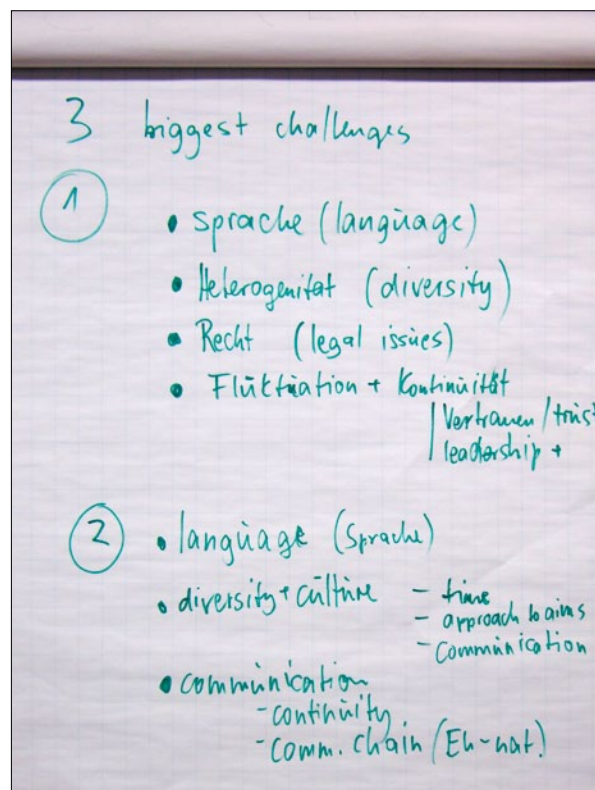 3 biggest challenges
1
• Sprache (language)
• Heterogenität (diversity)
• Recht (legal issues)
• Fluktuation + Kontinuität
Vertrauen / trust
leadership +
2
• language (Sprache)
• diversity + culture - time
- approach to aims
- communication
• communication
- continuity
- comm. chain (Eh-nat.)